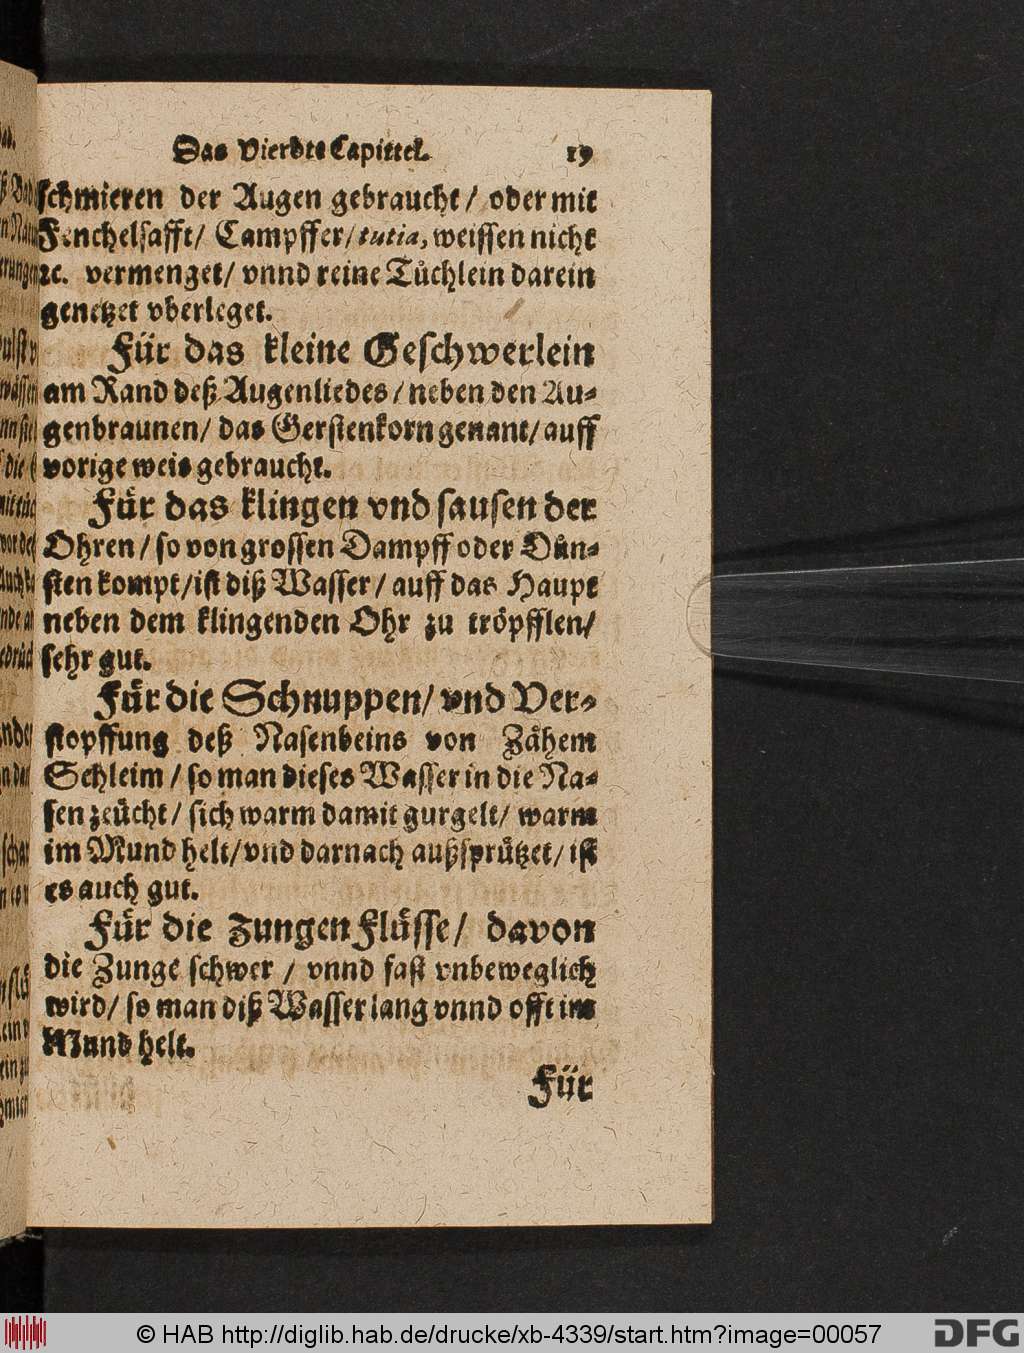 Das Vierdte Capittel. 19
schmieren der Augen gebraucht / oder mit
Fenchelsafft / Campffer / tutia, weissen nicht
ꝛc. vermenget / vnnd reine Tůchlein darein
genetzet vberleget.
Für das kleine Geschwerlein
am Rand deß Augenliedes / neben den Au⸗
genbraunen / das Gerstenkorn genant / auff
vorige weis gebraucht.
Für das klingen vnd sausen der
Ohren / so von grossen Dampff oder Důn⸗
sten kompt / ist diß Wasser / auff das Haupt
neben dem klingenden Ohr zu tröpfflen /
sehr gut.
Für die Schnuppen / vnd Ver⸗
stopffung deß Nasenbeins von Zähem
Schleim / so man dieses Wasser in die Na⸗
sen zeücht / sich warm damit gurgelt / warm
im Mund helt / vnd darnach außsprützet / ist
es auch gut.
Für die Zungen Flüsse / davon
die Zunge schwer / vnnd fast vnbeweglich
wird / so man diß Wasser lang vnnd offt im
Mund helt.
Für
© HAB http://diglib.hab.de/drucke/xb-4339/start.htm?image=00057
DFG